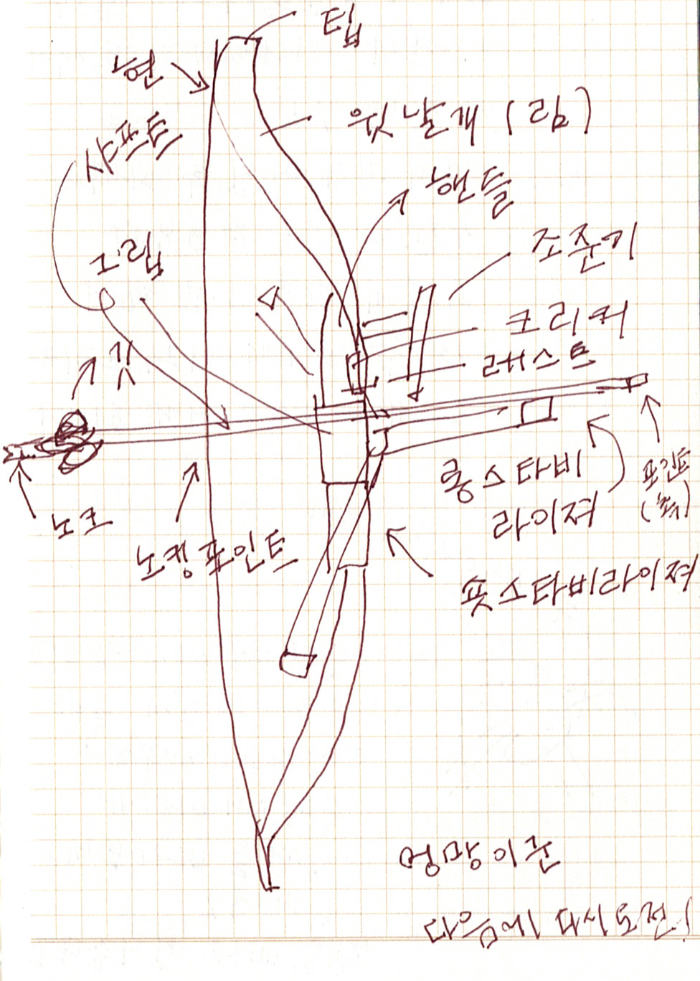 팁
현
윗날개 (림)
샤프트
핸들
그립
조준기
크리커
깃
레스트
롱스타비
라이져
포인트
(촉)
노크
노킹포인트
숏스타비라이져
엉망이군
다음에 다시도전!